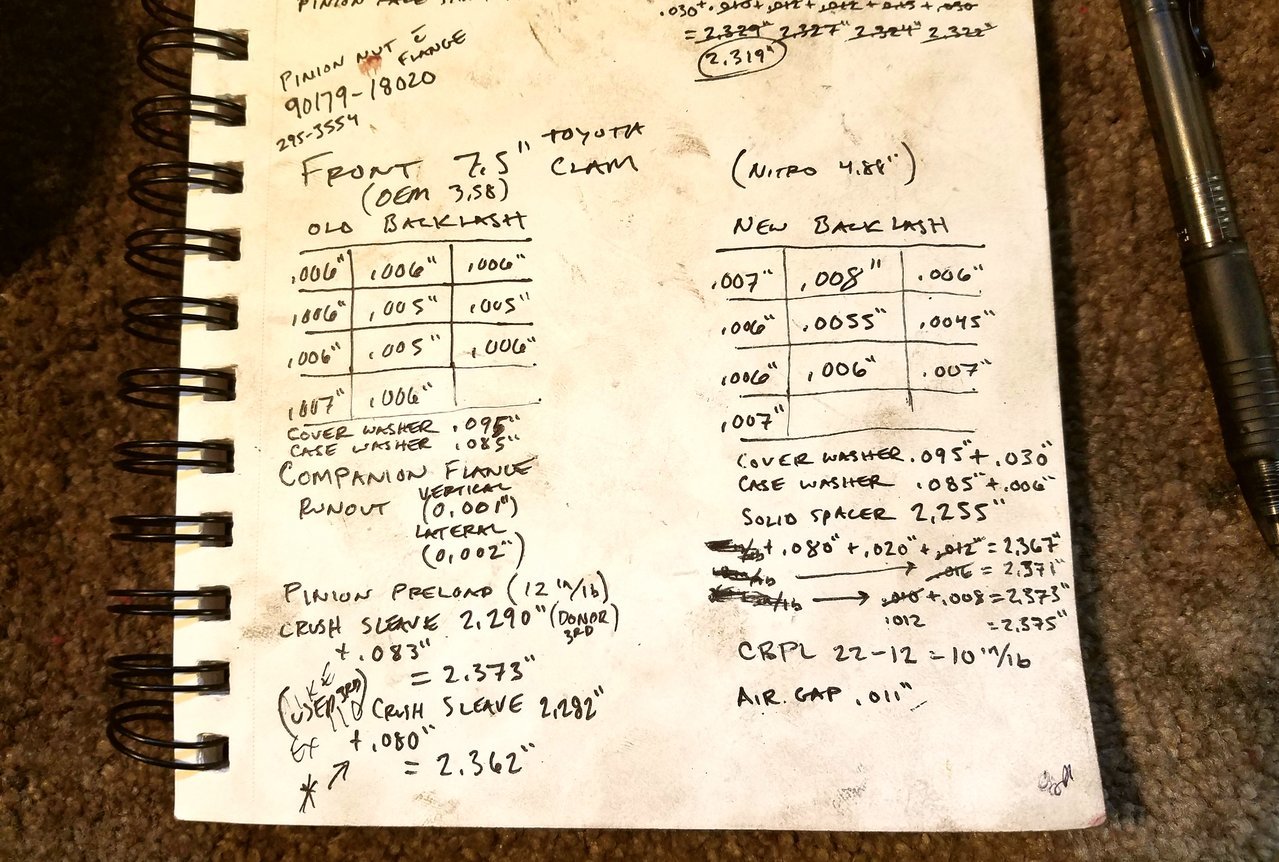 PINION
.030+.010+.012+.012+.015+.030
= 2.329" 2.327" 2.324" 2.322"
2.319"
PINION NUT C̄
FLANGE
90179-18020
295-3554
FRONT 7.5" TOYOTA CLAM
(OEM 3.58)
(NITRO 4.88")
OLD BACKLASH
.006" .006" .006"
.006" .005" .005"
.006" .005" .006"
.007" .006"
COVER WASHER .095"
CASE WASHER .085"
COMPANION FLANGE
RUNOUT VERTICAL (0.001")
LATERAL
(0.002")
PINION PRELOAD (12 in/lb)
CRUSH SLEAVE 2.290" (DONOR 3RD)
+ .083"
= 2.373"
(USED 3RD) CRUSH SLEAVE 2.282"
+ .080"
* = 2.362"
NEW BACKLASH
.007" .008" .006"
.006" .0055" .0045"
.006" .006" .007"
.007"
COVER WASHER .095"+.030"
CASE WASHER .085"+.006"
SOLID SPACER 2.255"
+ .080"+.020"+.012" = 2.367"
.016 = 2.371"
.010 +.008 = 2.373"
.012 = 2.375"
CBPL 22-12 = 10 in/lb
AIR GAP .011"